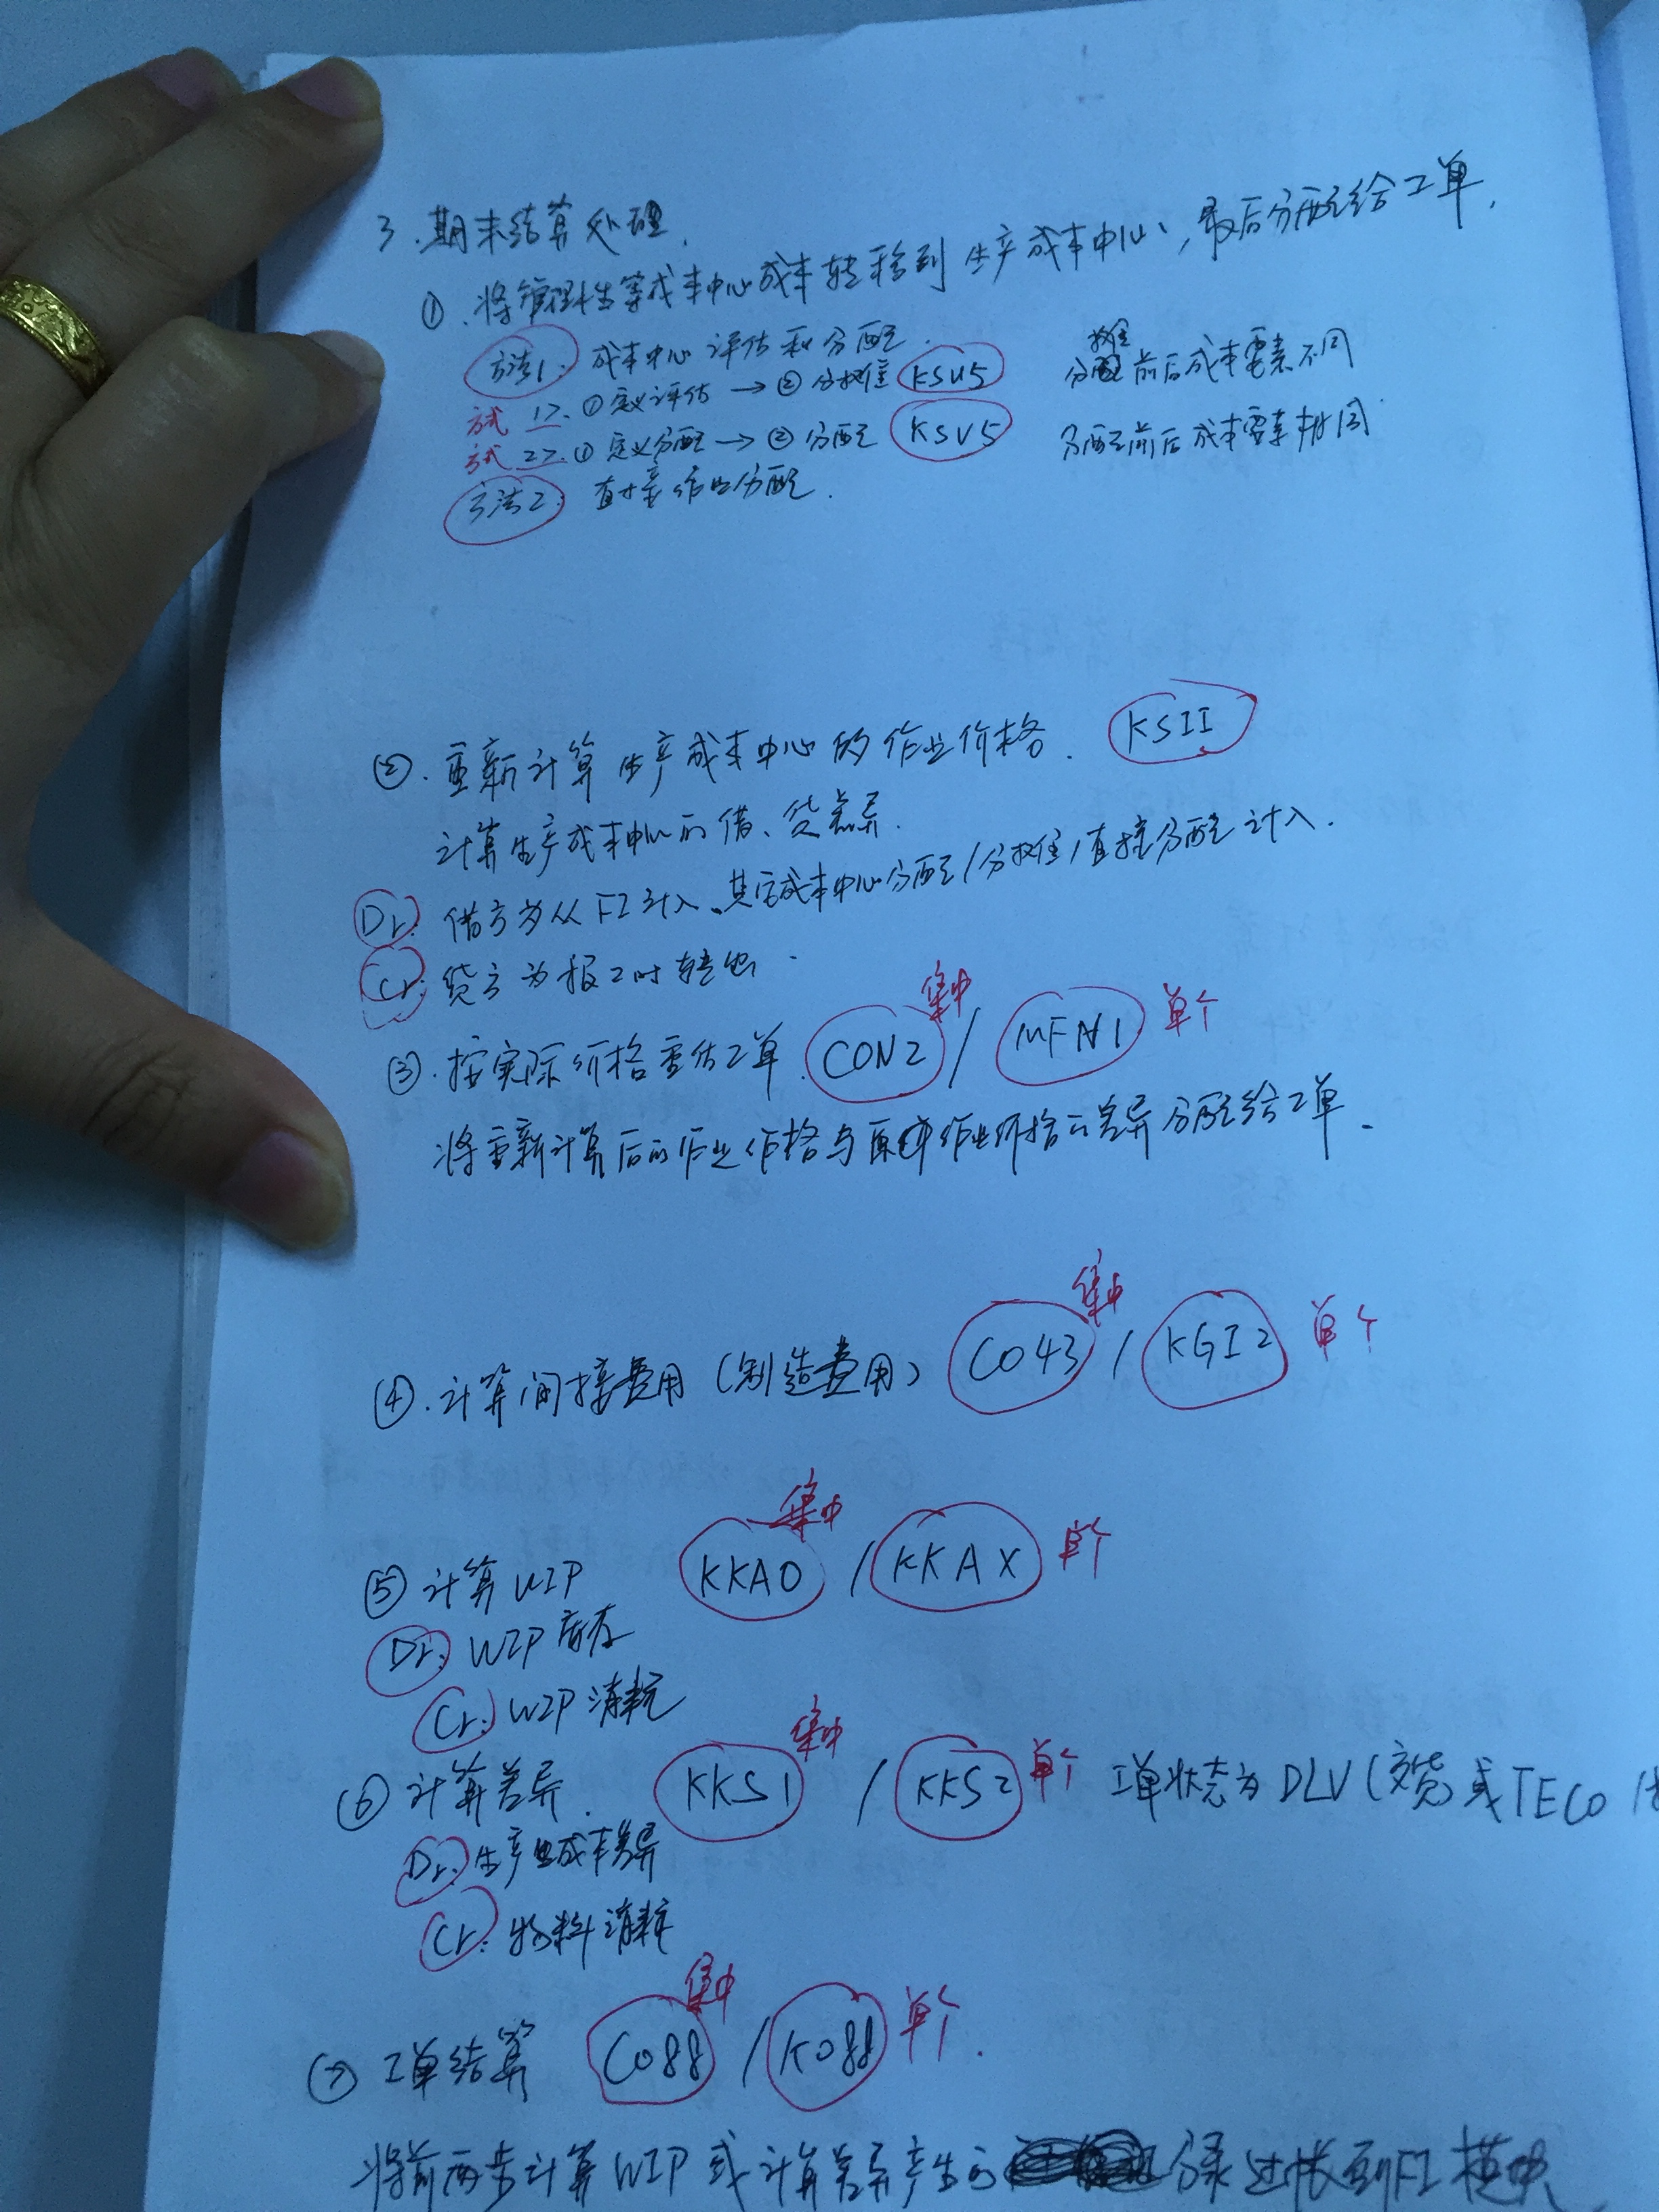 3. 期末结算处理.
①. 将管理性等成本中心成本转移到生产成本中心, 最后分配给工单.
方法1. 成本中心评估和分配.
方式 1>. ①定义评估 → ②分摊 KSU5 分摊前后成本要素不同
方式 2>. ①定义分配 → ②分配 KSV5 分配前后成本要素相同.
方法2. 直接作业分配.
②. 重新计算生产成本中心的作业价格. KSII
计算生产成本中心的借、贷差异.
Dr: 借方为从FI计入、其它成本中心分配/分摊/直接分配计入.
Cr: 贷方为报工时转出.
③. 按实际价格重估工单. CON2 集中 / MFN1 单个
将重新计算后的作业价格与原作业价格的差异分配给工单.
④. 计算间接费用(制造费用) CO43 集中 / KGI2 单个
⑤ 计算WIP KKAO 集中 / KKAX 单个
Dr: WIP库存
Cr: WIP消耗
⑥ 计算差异. KKS1 集中 / KKS2 单个 工单状态为DLV(交货)或TECO
Dr: 生产成本差异
Cr: 物料消耗
⑦ 工单结算 CO88 集中 / KO88 单个.
将前两步计算WIP或计算差异产生的分录过帐到FI模块